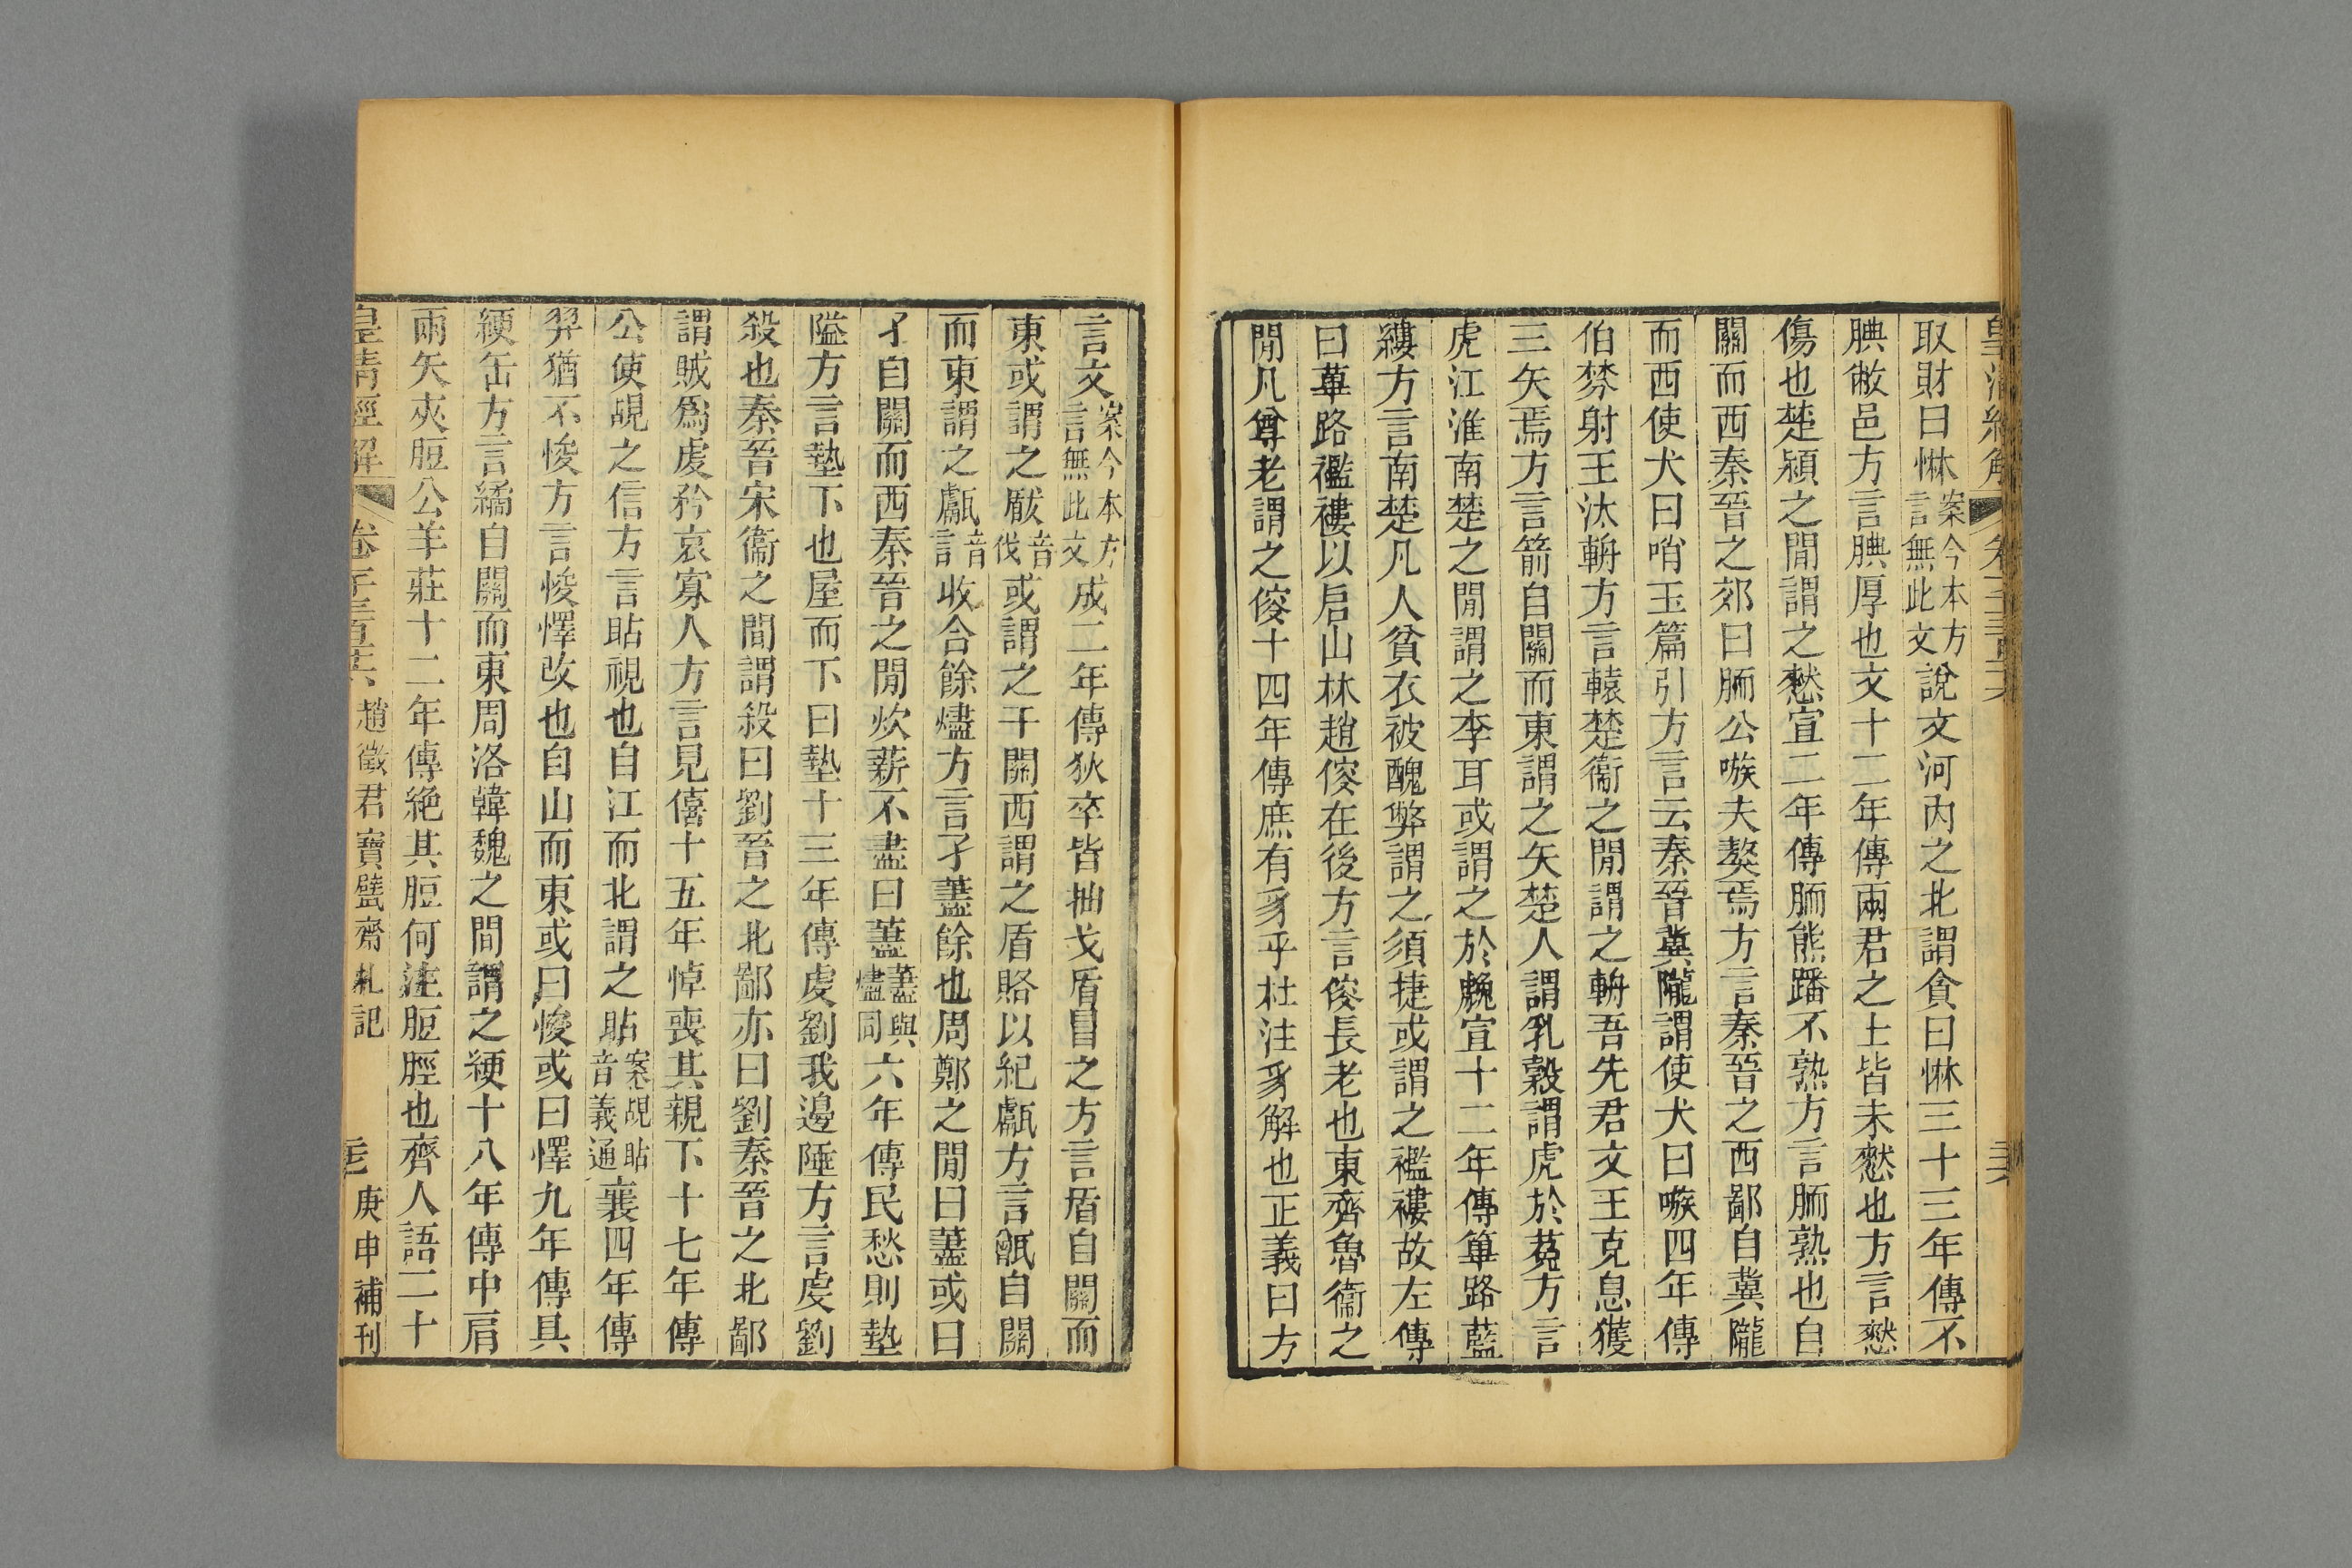 取財曰惏案今本方言無此文說文河內之北謂貪曰惏三十三年傳不
腆敝邑方言腆厚也文十二年傳兩君之士皆未憖也方言憖
傷也楚潁之閒謂之憖宣二年傳胹熊蹯不熟方言胹熟也自
關而西秦晉之郊曰胹公嗾夫獒焉方言秦晉之西鄙自冀隴
而西使犬曰哨玉篇引方言云秦晉冀隴謂使犬曰嗾四年傳
伯棼射王汰輈方言轅楚衞之閒謂之輈吾先君文王克息獲
三矢焉方言箭自關而東謂之矢楚人謂乳穀謂虎於菟方言
虎江淮南楚之閒謂之李耳或謂之於䖘宣十二年傳篳路藍
縷方言南楚凡人貧衣被醜弊謂之須捷或謂之襤褸故左傳
曰蓽路襤褸以启山林趙傁在後方言傁長老也東齊魯衞之
閒凡尊老謂之傁十四年傳庶有豸乎杜注豸解也正義曰方
言文案今本方言無此文成二年傳狄卒皆抽戈盾冒之方言盾自關而
東或謂之瞂音伐或謂之干關西謂之盾賂以紀甗方言甑自關
而東謂之甗音言收合餘燼方言孑藎餘也周鄭之閒曰藎或曰
孑自關而西秦晉之閒炊薪不盡曰藎藎與燼同六年傳民愁則墊
隘方言墊下也屋而下曰墊十三年傳虔劉我邊陲方言虔劉
殺也秦晉宋衞之間謂殺曰劉晉之北鄙亦曰劉秦晉之北鄙
謂賊爲虔矜哀寡人方言見僖十五年悼喪其親下十七年傳
公使覘之信方言䀡視也自江而北謂之䀡案覘䀡音義通襄四年傳
羿猶不悛方言悛懌改也自山而東或曰悛或曰懌九年傳具
綆缶方言繘自關而東周洛韓魏之間謂之綆十八年傳中肩
兩矢夾脰公羊莊十二年傳絶其脰何注脰脛也齊人語二十
皇清經解 卷千三百廿六 趙徵君寶甓齋札記 庚申補刊